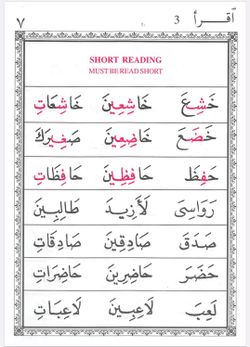 ٧ 3 اقرأ
SHORT READING
MUST BE READ SHORT
خَشِعَ خَاشِعِينَ خَاشِعَاتِ
خَضَعَ خَاضِعِينَ صَغِيرَكَ
حَفِظَ حَافِظِينَ حَافِظَاتِ
رَوَاسِىَ لَأَزِيدَ طَالِبِينَ
صَدَقَ صَادِقِينَ صَادِقَاتِ
حَضَرَ حَاضِرِينَ حَاضِرَاتِ
لَعِبَ لَاعِبِينَ لَاعِبَاتِ